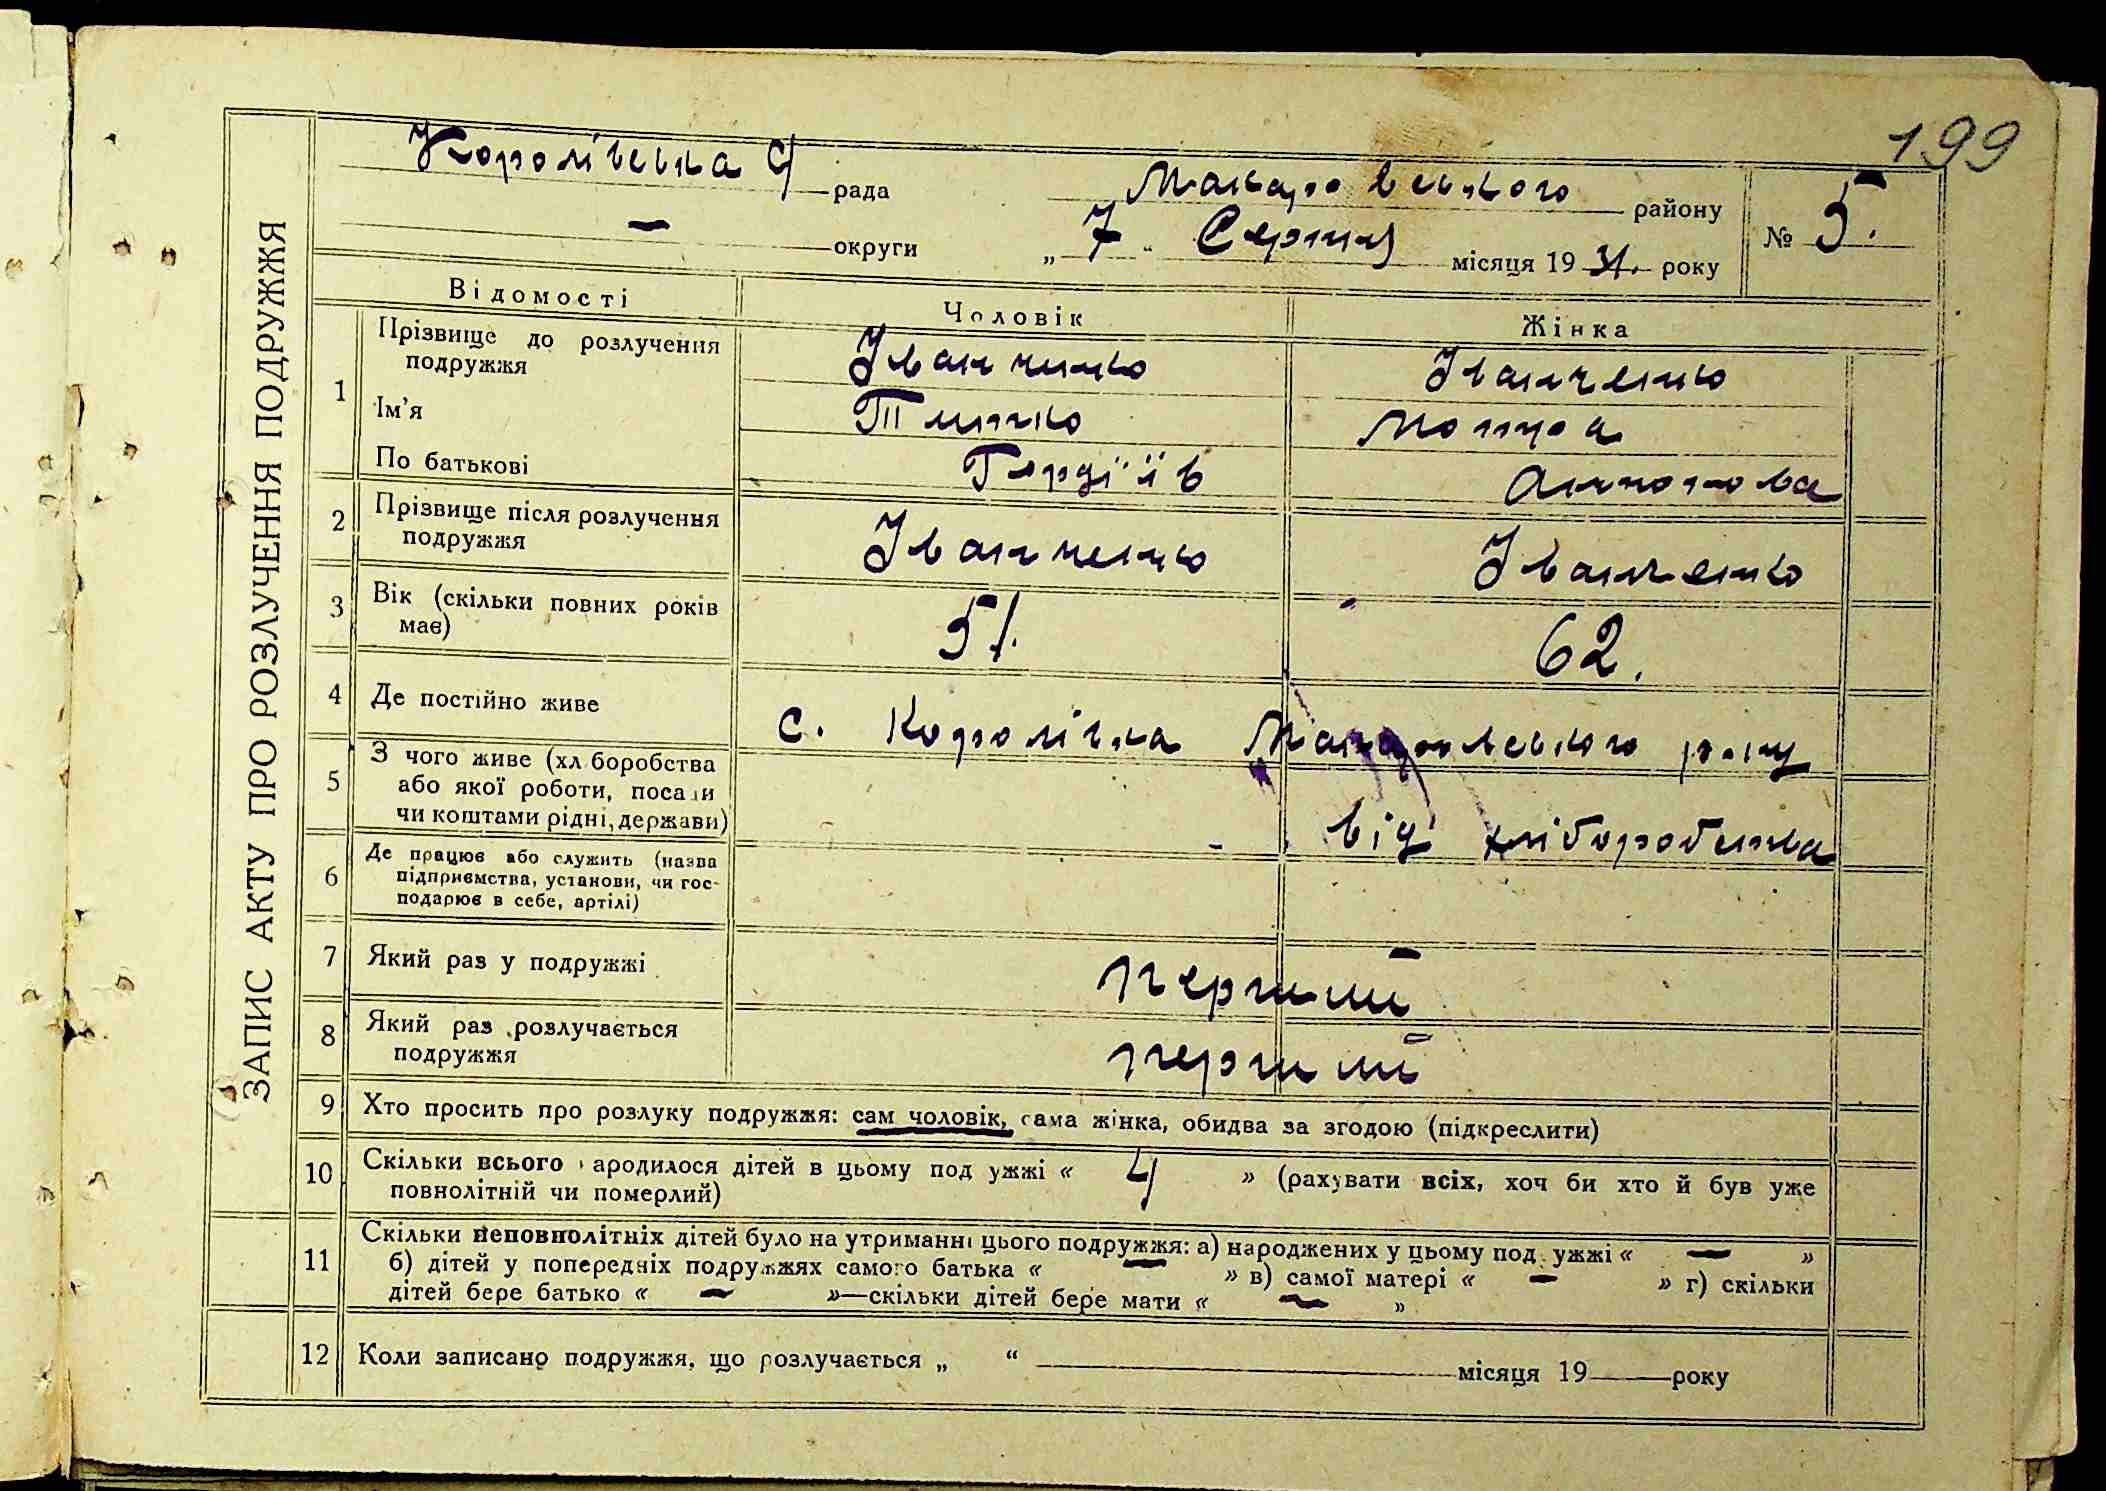 199
ЗАПИС АКТУ ПРО РОЗЛУЧЕННЯ ПОДРУЖЖЯ
Королівська с/рада
Макарівського району
№ 5.
— округи
„7" Серпня місяця 1931. року
Відомості
Чоловік
Жінка
1 Прізвище до розлучення подружжя
Іванченко
Іванченко
Ім'я
Мотря
По батькові
Гордіїв
Антонова
2 Прізвище після розлучення подружжя
Іванченко
Іванченко
3 Вік (скільки повних років має)
51.
62.
4 Де постійно живе
с. Королівка Макарівського р-ну
5 З чого живе (хліборобства
або якої роботи, посади
чи коштами рідні, держави)
від хліборобства
6 Де працює або служить (назва
підприємства, установи, чи гос-
подарює в себе, артілі)
7 Який раз у подружжі
перший
8 Який раз розлучається
подружжя
перший
9 Хто просить про розлуку подружжя: сам чоловік, сама жінка, обидва за згодою (підкреслити)
10 Скільки всього народилося дітей в цьому подружжі « 4 » (рахувати всіх, хоч би хто й був уже
повнолітній чи померлий)
11 Скільки неповнолітніх дітей було на утриманні цього подружжя: а) народжених у цьому подружжі « — »
б) дітей у попередніх подружжях самого батька « — » в) самої матері « — » г) скільки
дітей бере батько « — »—скільки дітей бере мати « — »
12 Коли записано подружжя, що розлучається „ “ місяця 19 року